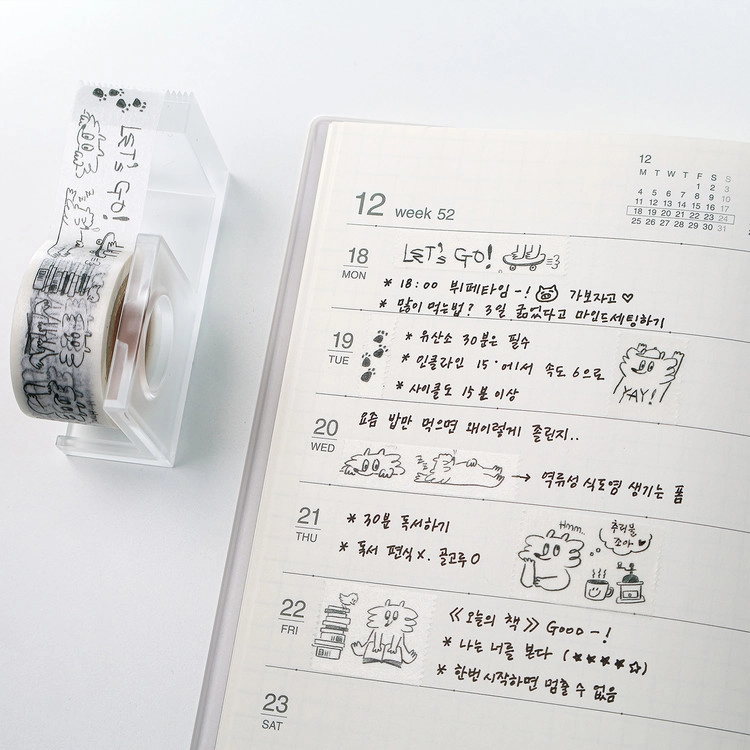 LET'S GO!
12
M T W T F S S
1 2 3
4 5 6 7 8 9 10
11 12 13 14 15 16 17
18 19 20 21 22 23 24
25 26 27 28 29 30 31
12 week 52
18 MON
LET'S GO!
* 18:00 뷔페타임-! 가보자고♡
* 많이 먹는법? 3일 굶었다고 마인드세팅하기
19 TUE
* 유산소 30분은 필수
* 인클라인 15°에서 속도 6으로
* 사이클도 15분 이상
YAY!
20 WED
요즘 밥만 먹으면 왜이렇게 졸린지..
→ 역류성 식도염 생기는 폼
21 THU
* 30분 독서하기
* 독서 편식 x. 골고루 o
Hmm..
추러블
조아..♥
22 FRI
《오늘의 책》 Good-!
* 나는 너를 본다 (★★★★☆)
* 한번 시작하면 멈출 수 없음
23 SAT